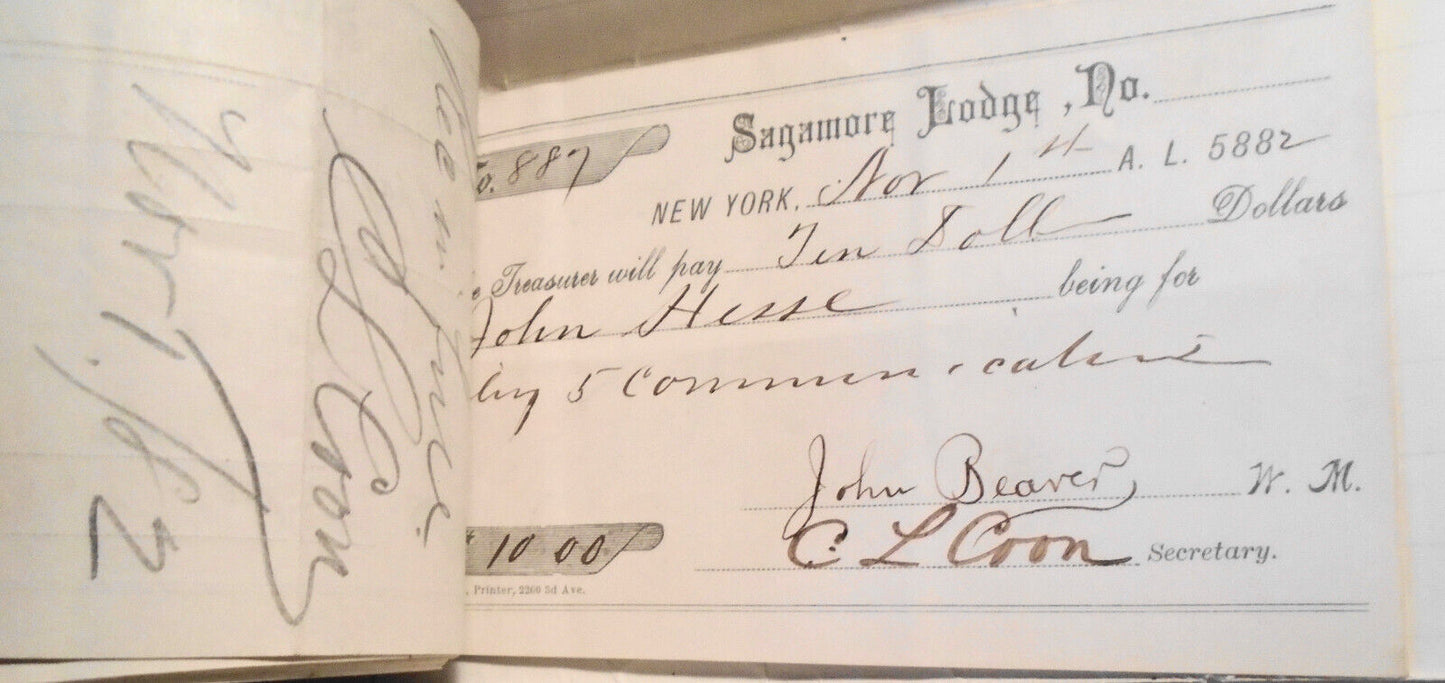 Sagamore Lodge, No.
o. 887
NEW YORK, Nov 1st A. L. 5882
e Treasurer will pay Ten Doll Dollars
John Hesse being for
5 Communications
John Beaver W. M.
$10 00
C. L. Coon Secretary.
, Printer, 2260 3d Ave.
C L Coon